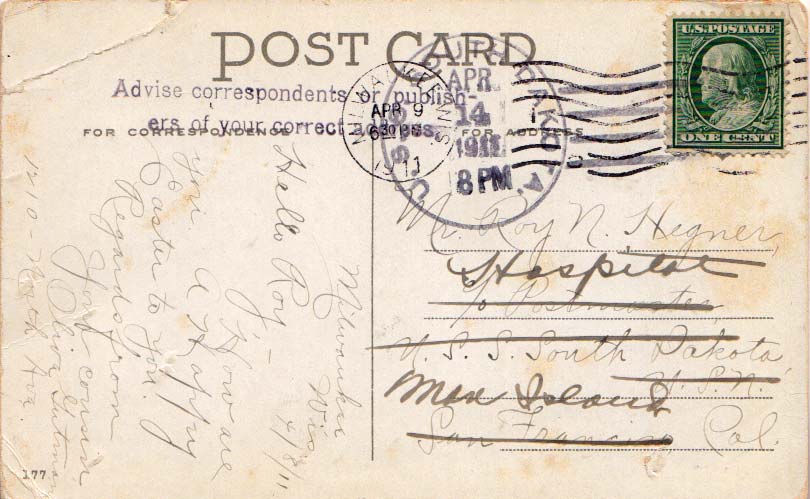 POST CARD
U.S. POSTAGE
ONE CENT
Advise correspondents or publish-
ers of your correct address.
FOR CORRESPONDENCE
FOR ADDRESS
MILWAUKEE, WIS.
APR 9
630 PM
1911
U.S.S. SOUTH DAKOTA.
APR
14
1911
8 PM
Milwaukee
Wis 4/8/11
Hello Roy -
How are
you. A Happy
Easter to you.
Regards from
Your cousin
Olive
1210 - North Ave
Mr. Roy N. Hegner,
Hospital
c/o Postmaster
U. S. S. South Dakota
U.S.N.
Mare Island
San Francisco Cal.
177